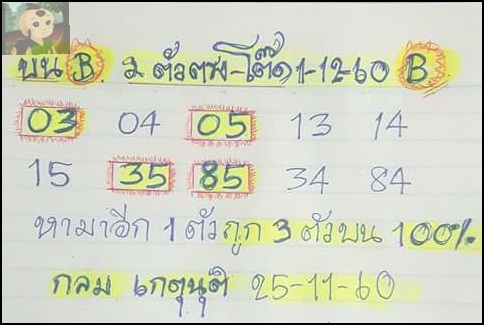 บน B. 2 ตัวตรง-โต๊ด 1-12-60 B.
03 04 05 13 14
15 35 85 34 84
หามาอีก 1 ตัวถูก 3 ตัวบน 100%
กลม 25-11-60